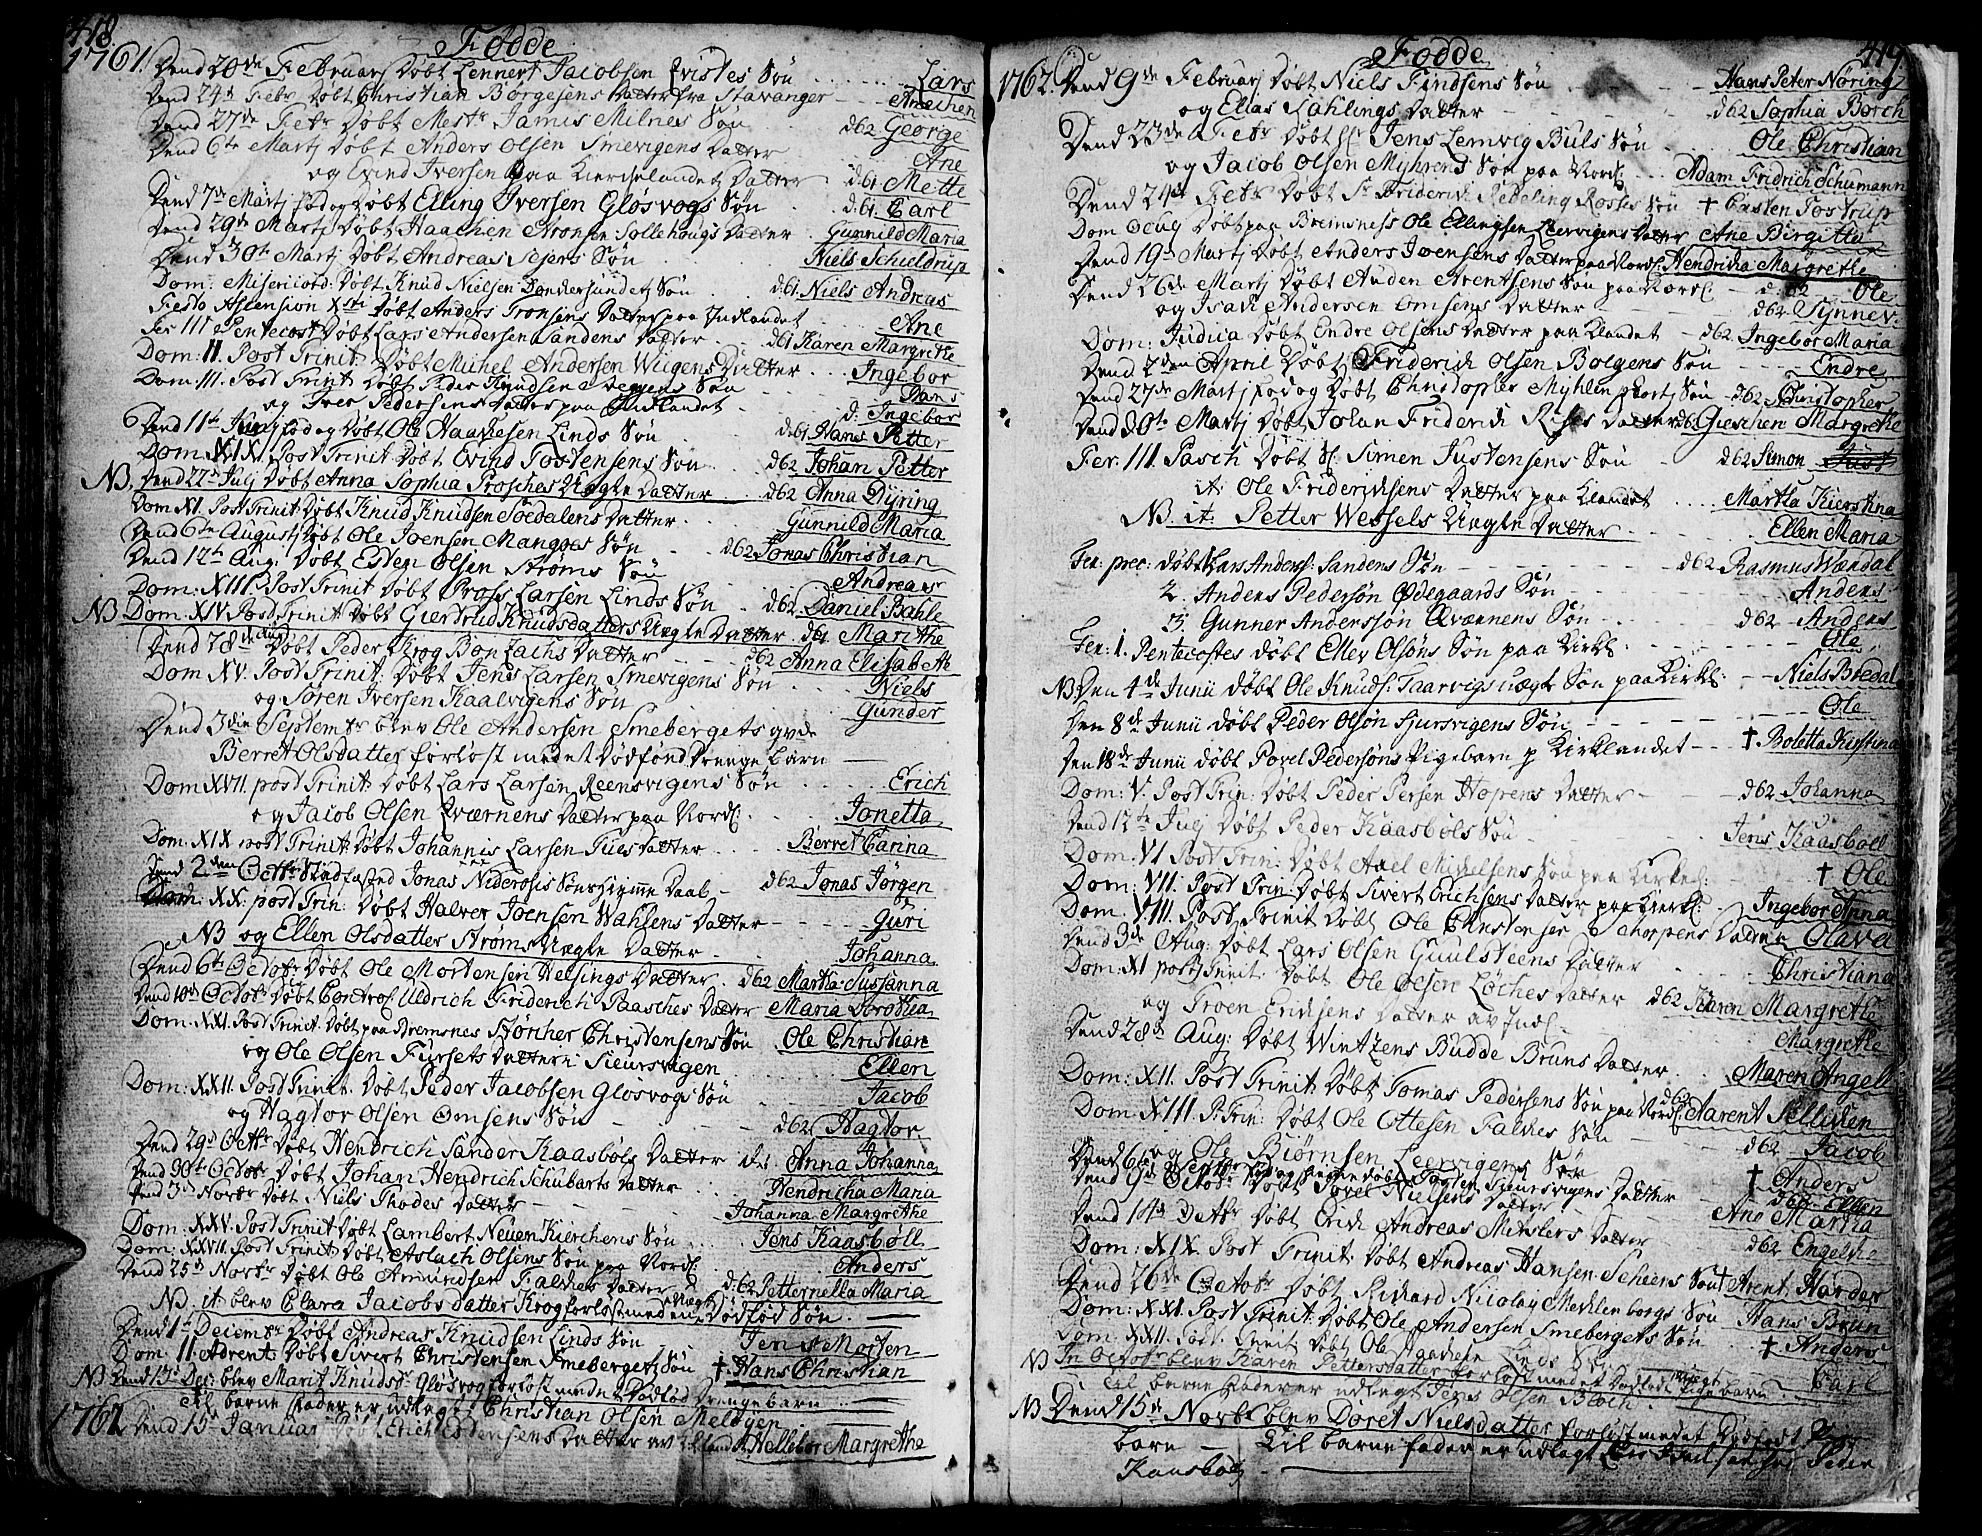 418.
Fødde
1761. Dend 20de Februarj Døbt Lennert Jacobsen Qvistes Søn ...... Lars
Dend 24d Febr. Døbt Christian Børgesens Datter fra Stavanger - Anichen
Dend 27de Febr. Døbt Mestr. Jamis Milnes Søn d62 George
Dend 6te Martj Døbt Anders Olsen Smevigens Datter Ane
og Evind Iversen paa Kierchelandet Datter d61 Mette
Dend 7de Martj fød og Døbt Elling Iversen Glosvogs Søn d.61. Carl
Dend 29de Martj Døbt Haachen Aronsen Sollehougs Datter Gunnild Maria
Dend 30t Martj Døbt Andreas Sejers Søn Niels Schieldrup
Dom: Misericord: Døbt Knud Nielsen Søndersundets Søn d.61. Niels Andreas
Festo Ascension Xsti Døbt Anders Tronsens Datter paa Indlandet Ane
Fer III Pentecost Døbt Lars Andersen Sandens Datter d61 Karen Margrethe
Dom: II. Post Trinit: Døbt Michel Andersen Wiigens Datter ... Ingebor
Dom: III. Post Trinit Døbt Peder Knudsen Søn Hans
og Iver Pedersens Datter paa Indlandet d. Ingebor
Dend 11t Junj fød og Døbt Ole Haachesen Linds Søn d61 Hans Petter
Dom XIX. Post Trinit. Døbt Evind Tostensens Søn d62 Johan Petter
NB. Dend 22de Julj Døbt Anna Sophia Prosches Uægte Datter d62 Anna Dyring
Dom XI. Post Trinit: Døbt Knud Knudsen Soedalens Datter Gunnild Maria
Dend 6te Augustj Døbt Ole Joensen Mangoes Søn d62 Jonas Christian
Dend 12te Aug: Døbt Esten Olsen Strøms Søn Andreas
Dom: XIII. Post Trinit Døbt Larsen Linds Søn d62. Daniel Bahle
NB Dom: XIV. Post Trinit: Døbt Giertrud Knudsdatters Uægte Datter d61 Marithe
Dend 28de Aug. Døbt Peder Krog Bonzachs Datter d62 Anna Elisabeth
Dom XV. Post Trinit: Døbt Jens Larsen Smevigens Søn Niels
og Søren Iversen Kaalvigens Søn Gunder
Dend 3die Septembr blev Ole Andersen Smebergets qvde
Berret Olsdatter forløst med et Dødfønd Drenge barn
Dom XVII. post Trinit: Døbt Lars Larsen Reensvigens Søn Erich
og Jacob Olsen Qværnens Datter paa Nordl: Jonetta
Dom: XIX post Trinit: Døbt Johannes Larsen Tues Datter Berret Carina
Dend 2den Octbr Jonas Niderosis Daal d62 Jonas Jørgen
Dom. XX. post Trin: Døbt Halver Joensen Wahsens Datter Guri
NB og Ellen Olsdatter Strøms Uægte Datter Johanna
Dend 6te Octobr Døbt Ole Mortensen Helsings Datter d62 Martha Susanna
Dend 10de Octobr Døbt Contros. Uldrich Friderich Paasches Datter Maria Dorothea
Dom: XXI. Post Trinit: Døbt paa Bremsnes Størcher Christensens Søn Ole Christian
og Ole Olsen Fursets Datter i Sieursvigen Ellen
Dom: XXII. Post Trinit: Døbt Peder Jacobsen Glosvogs Søn Jacob
og Hagtor Olsen Omsens Søn d62. Hagtor
Dend 29d Octbr Døbt Hendrich Sander Kaasbøls Datter Anna Johanna
Dend 30te Octobr Døbt Johan Hendrich Schubarts Datter Hendricha Maria
Dend 3d Novbr Døbt Niels Thodes Datter Johanna Margrethe
Dom: XXV. Post Trinit Døbt Lambert Neuen Kierchens Søn Jens Kaasbøll
Dom: XXVII. Post Trinit: Døbt Aslach Olsens Søn paa Nordl: Anders
Dend 25d Novbr Døbt Ole Amundsen Falches Datter d62 Petternella Maria
NB it: blev Clara Jacobsdatter Krog forløst med en Uægte Dødfød Søn.
Dend 1te Decembr Døbt Andreas Knudsen Linds Søn Jens Morten
Dom II Advent: Døbt Sivert Christensen Smebergets Søn † Hans Christian
NB Dend 13d Dec: blev Marit Knudsdr Glosvog forløst med et Dødfød Drengebarn
Til barne Fader er udlagt Christian Olsen Meløyen
1762 Dend 15d Januarj Døbt Erich Estensens Datter Hellebor Margrethe

Fødde
419.
1762. Dend 9de Februarj Døbt Niels Findsens Søn Hans Peter Nøring
og Elias Sahlings Datter d62 Sophia Borch
Dend 23de Febr Døbt Hr Jens Lemvig Buls Søn Ole Christian
og Jacob Olsen Myhrens Søn paa Nordl: Adam Fridrich Schumann
Dend 24de Febr Døbt Sr. Friderich Redeling Rosses Søn † Casten Tostrup
Dom Oculj Døbt paa Bremsness Ole Ellingsen Leervigens Datter Ane Birgitte
Dend 19de Martj Døbt Anders Joensens Datter paa Nordl. Hendricha Margrethe
Dend 26de Martj Døbt Auden Arentsens Søn paa Nordl: Ole
og Isach Andersen Omsens Datter d62 Synnev.
Dom: Judica Døbt Endre Olsens Datter paa Klandet d62. Ingebor Maria
Dend 2den April Døbt Friderich Olsen Bolgens Søn Endre
Dend 27de Martj fød og Døbt Christopher Myhlenphort Søn d62 Christopher
Dend 30te Martj Døbt Johan Friderich Rises Datter Gieschen Margrethe
Fer. III. Pasch Døbt Sl. Simen Justensens Søn d62 Simon Just
it: Ole Friderichsens Datter paa Klandet Martha Kierstina
NB. it: Petter Wessels Uægte Datter Ellen Maria
Fer: prec: døbt Lars Anderss: Sandens Søn d62 Rasmus Wændal
2. Anders Pedersøn Ødegaards Søn Anders
3. Gunner Anderssøn Qværnens Søn d62 Anders
Fer: 1. Pentecostes døbt Ellev Olsøns Søn paa Kirkl: Ole
NB Den 4de Junii døbt Ole Knuds: Taarvigs uægte Søn paa Kirkl: Niels Bredal
Den 8de Junii døbt Peder Olsøn Sjursvigens Søn Ole
Den 18de Junii døbt Povel Pedersøns Pigebarn p Kirklandet † Boletta Kirstina
Dom: V. Post Trin: Døbt Peder Persen Hopens Datter d62 Johanna
Dend 12te Julj Døbt Peder Kaasbøls Søn Jens Kaasbøll
Dom: VI Post Trin: Døbt Axel Michelsens Søn paa Kirkel: † Ole
Dom: VII. Post Trin: Døbt Sivert Erichsens Datter paa Kierkl: Ingebor Anna
Dom: VIII. Post Trinit Døbt Ole Christensen Schorpens Datter Olava
Dend 3de Aug: Døbt Lars Olsen Guulsteens Datter Christiana
Dom: XI post Trinit: Døbt Ole Olsen Løches Datter d62 Karen Margrethe
og Troen Erichsens Datter av Indl: Margrethe
Dend 28d Aug: Døbt Wintzens Budde Bruns Datter Maren Angell
Dom: XII. Post Trinit: Døbt Tomas Pedersens Søn paa Nordl: d62 Aarent Selliken
Dom: XIII. P. Trin: Døbt Ole Ottesen Falches Søn d62 Jacob
og Ole Biørnsen Leervigens Søn † Anders
Dend 9de Octobr Døbt Povel Nielsens Datter
Dend 14d Octbr Døbt Erich Andreas Mitzlers Datter Ane Martha
Dom: XIX. Post Trinit: Døbt Andreas Hansen Scheens Søn d62 Engelche
Dend 26de Octobr Døbt Richard Nicolay Mechlenborgs Søn † Arent Harder
Dom: XXI. Post Trinit: Døbt Ole Andersen Smebergets Søn Hans Brun
Dom: XXII. Post. Trinit Døbt Ole Haachesen Linds Søn † Anders
NB In Octobr blev Karen Pettersdatter forløst med et Dødfødt Uægt Pigebarn Carl
Til barne Fader er udlagt Jens Olsen Bloch.
NB Dend 15de Novbr blev Døret Nielsdatter forløst med et Dødfødt
barn - Til barne fader er udlagt Peder
Kaasbøll